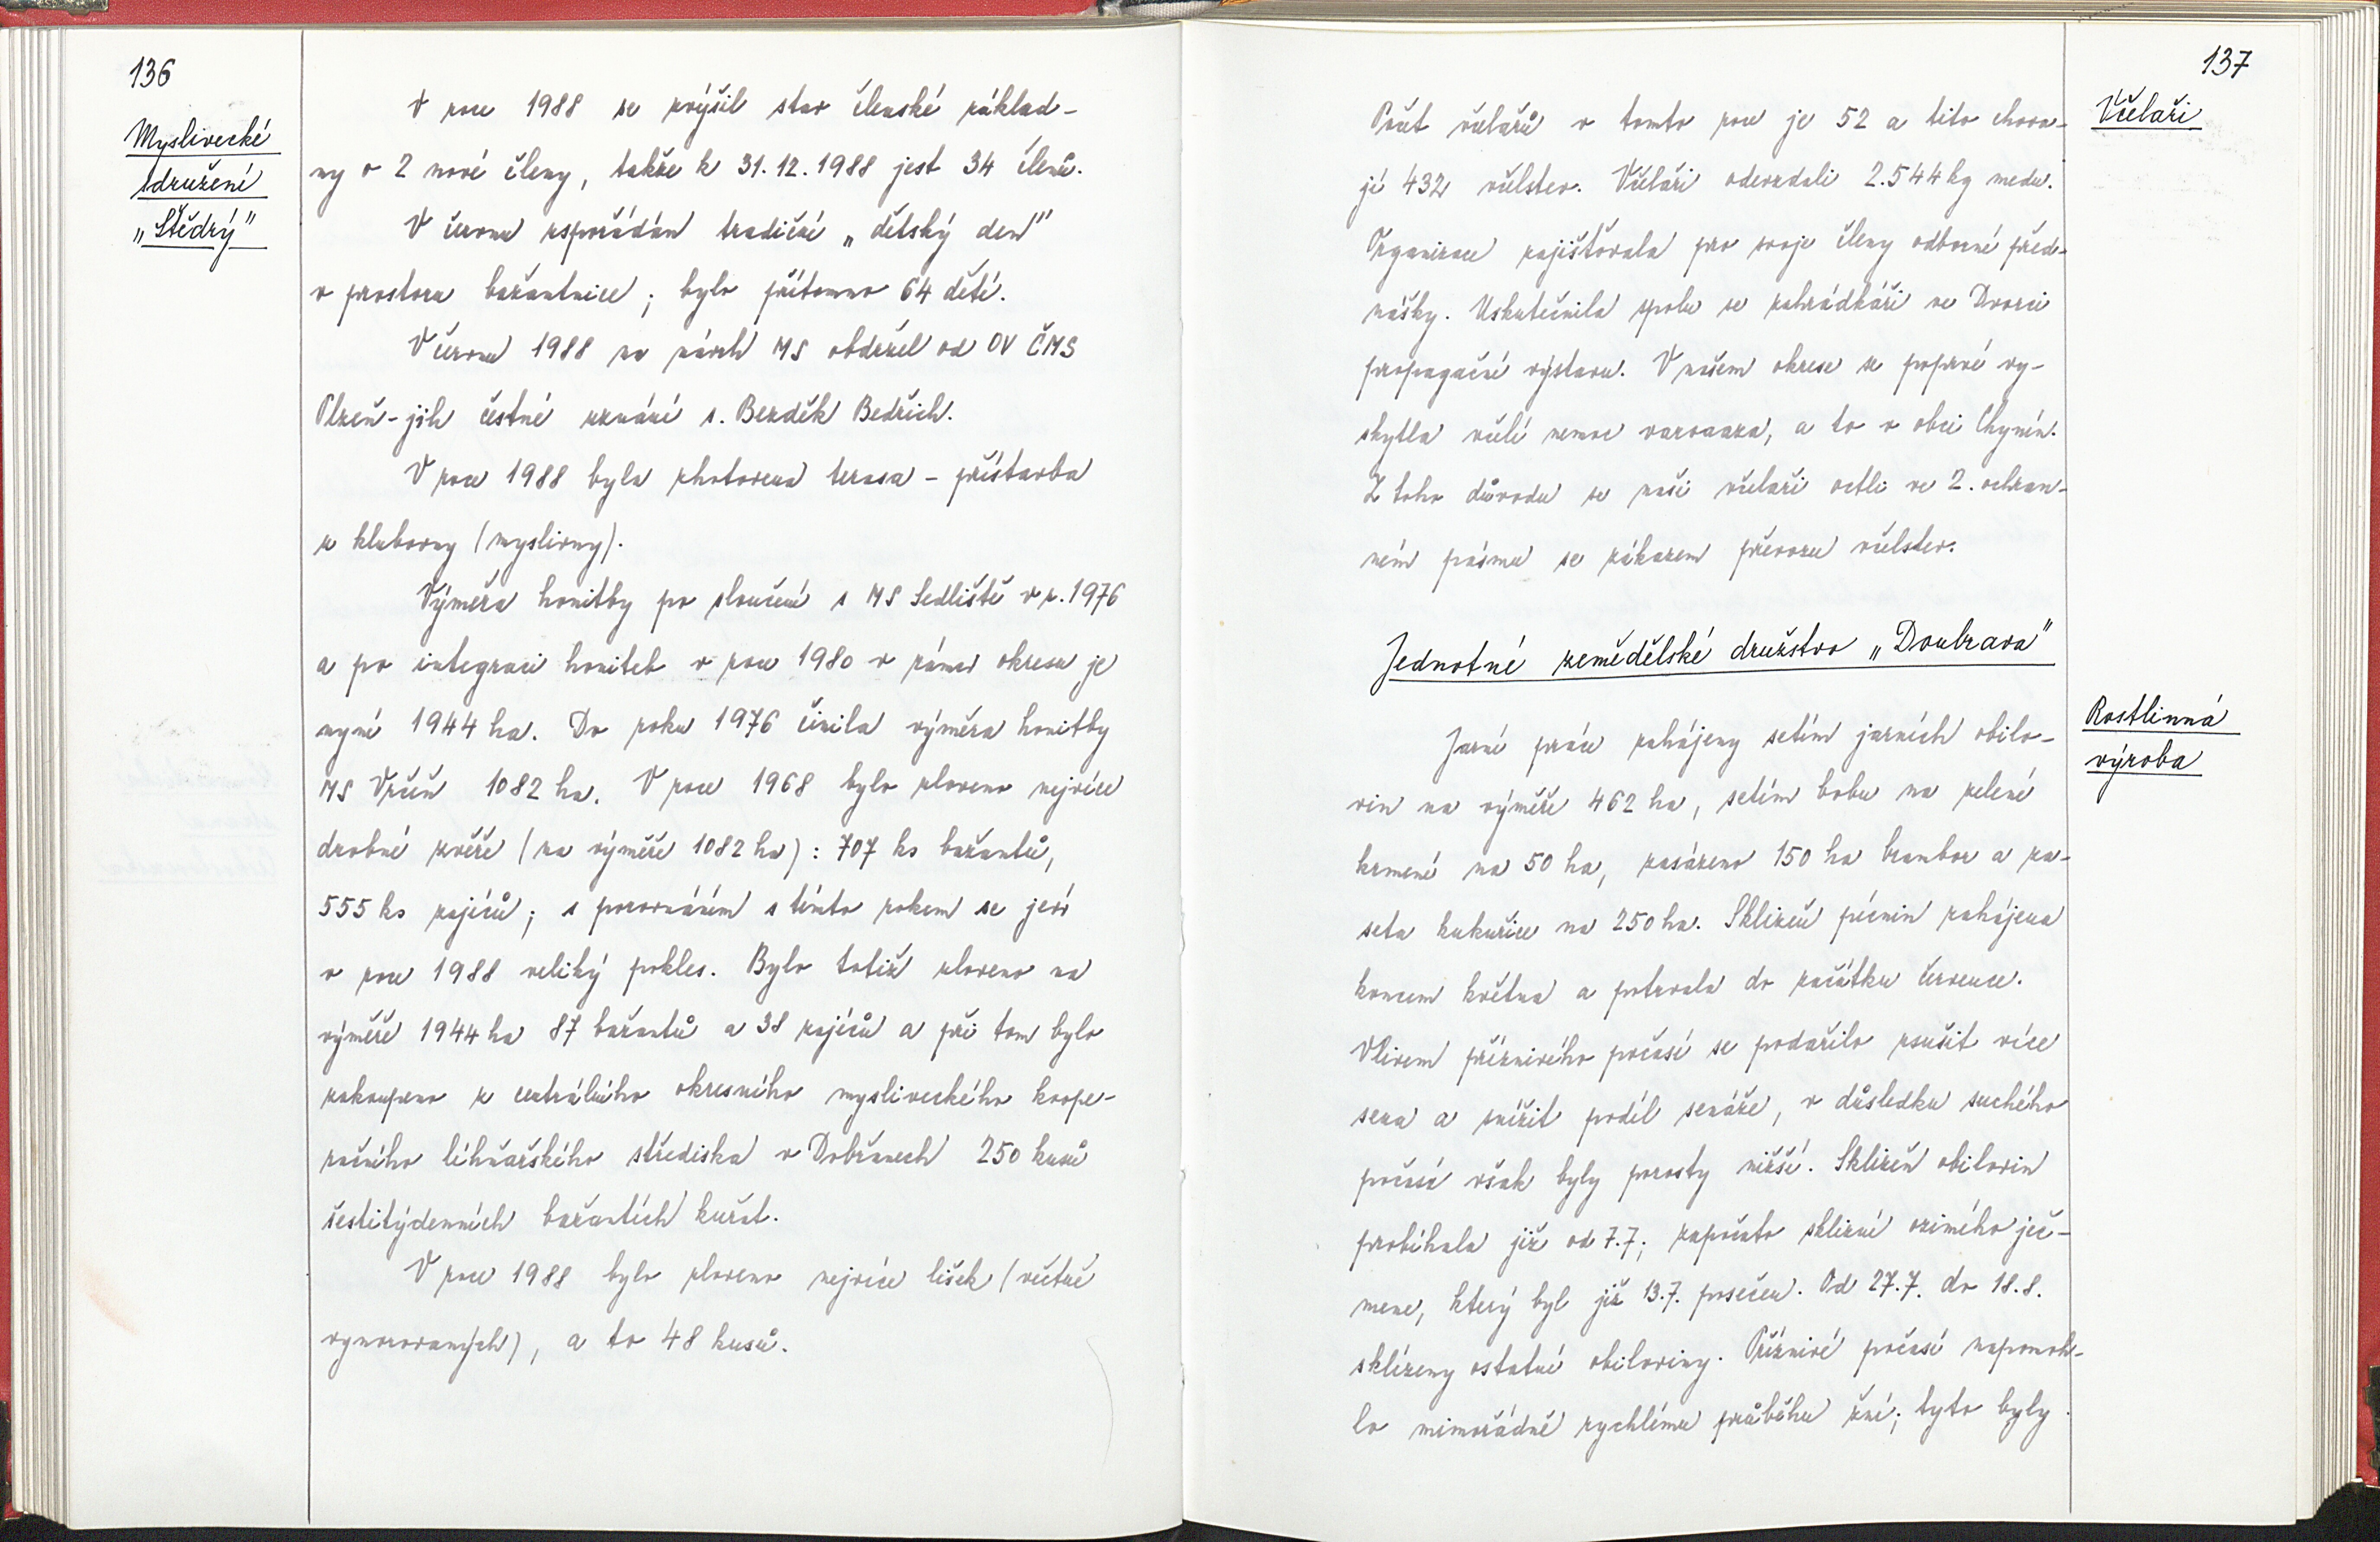 136
Myslivecké
sdružení
„Štědrý"
V roce 1988 se zvýšil stav členské základ-
ny o 2 nové členy, takže k 31.12.1988 jest 34 členů.
V červnu uspořádán tradiční „dětský den"
v prostoru bažantnice; bylo přítomno 64 dětí.
V červnu 1988 na návrh MS obdržel od OV ČMS
Plzeň-jih čestné uznání s. Bezděk Bedřich.
V roce 1988 byla zhotovena terasa - přístavba
u klubovny (myslivny).
Výměra honitby po sloučení s MS Sedliště v r. 1976
a po integraci honiteb v roce 1980 v rámci okresu je
nyní 1944 ha. Do roku 1976 činila výměra honitby
MS Vrčeň 1082 ha. V roce 1968 bylo uloveno nejvíce
drobné zvěře (na výměře 1082 ha): 707 ks bažantů,
555 ks zajíců; s porovnáním s tímto rokem se jeví
v roce 1988 veliký pokles. Bylo totiž uloveno na
výměře 1944 ha 87 bažantů a 38 zajíců a při tom bylo
zakoupeno z centrálního okresního mysliveckého koope-
račního líhňařského střediska v Dobřanech 250 kusů
šestitýdenních bažantích kuřat.
V roce 1988 bylo uloveno nejvíce lišek (včetně
vynorovaných), a to 48 kusů.
137
Včelaři
Počet včelařů v tomto roce je 52 a tito chova-
jí 432 včelstev. Včelaři odevzdali 2.544 kg medu.
Organizace zajišťovala pro svoje členy odborné před-
nášky. Uskutečnila spolu se zahrádkáři ve Dvorci
propagační výstavu. V našem okrese se poprvé vy-
skytla včelí nemoc varoaza, a to v obci Chynín.
Z toho důvodu se naši včelaři octli ve 2. ochran-
ném pásmu se zákazem převozu včelstev.
Jednotné zemědělské družstvo „Doubrava"
Rostlinná
výroba
Jarní práce zahájeny setím jarních obilo-
vin na výměře 462 ha, setím bobu na zelené
krmení na 50 ha, zasázeno 150 ha brambor a za-
seta kukuřice na 250 ha. Sklizeň pícnin zahájena
koncem května a potrvala do začátku července.
Vlivem příznivého počasí se podařilo usušit více
sena a snížit podíl senáže, v důsledku suchého
počasí však byly porosty nižší. Sklizeň obilovin
probíhala již od 7.7; započato sklizní ozimého ječ-
mene, který byl již 13.7. posečen. Od 27.7. do 18.8.
sklizeny ostatní obiloviny. Příznivé počasí napomoh-
lo mimořádně rychlému průběhu žní; tyto byly